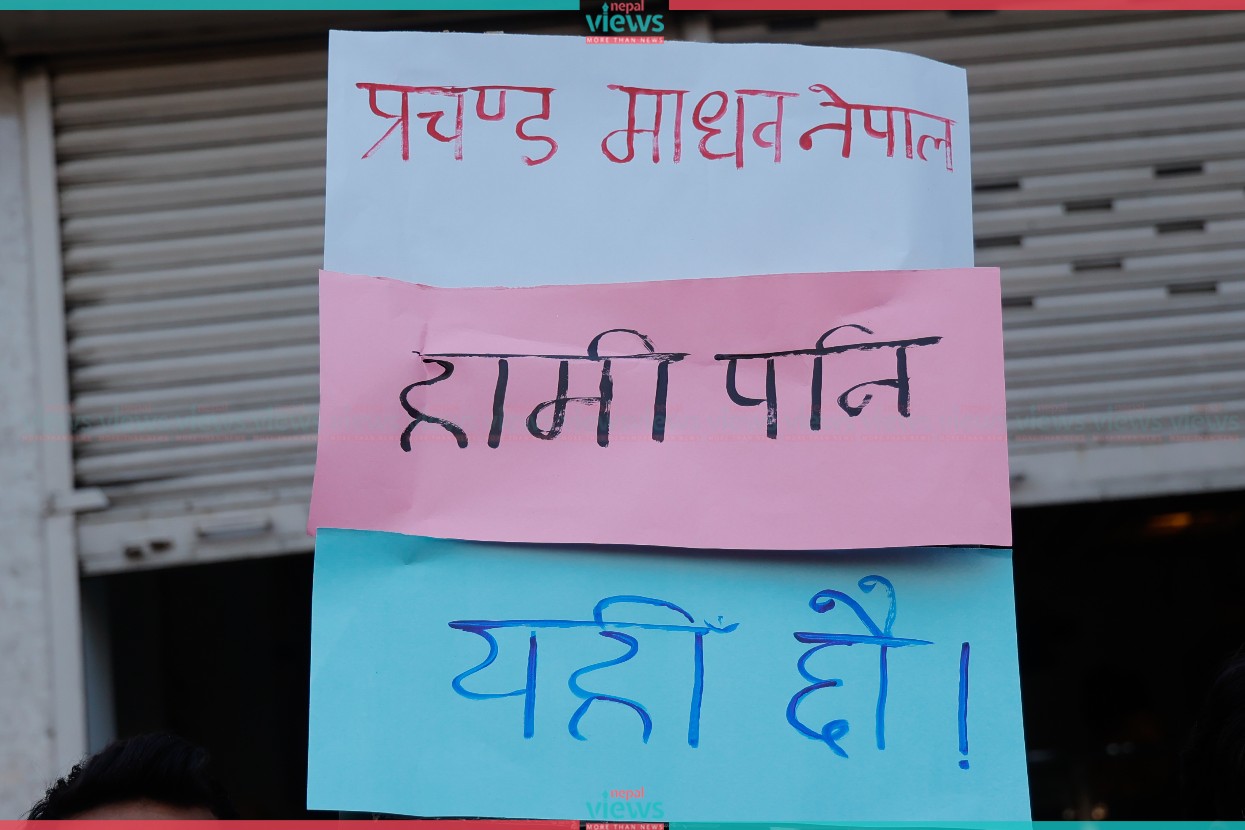 nepal
views
MORE THAN NEWS
प्रचण्ड माधव नेपाल
हामी पनि
यहीँ छौ !
nepal
views
MORE THAN NEWS